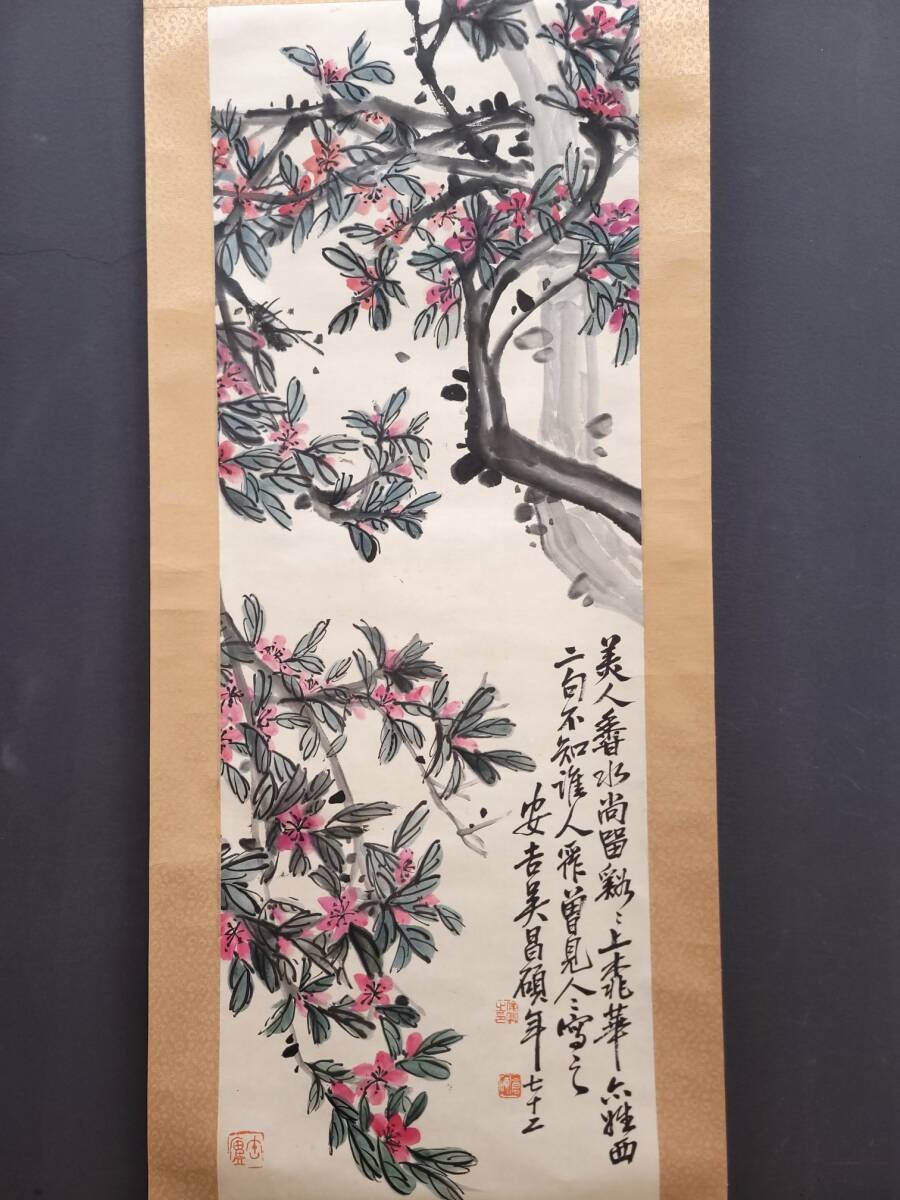 美人香水尚留谿〻上桃華亦姓西
二句不知誰人作曾見人〻寫之
安吉吳昌碩年七十二